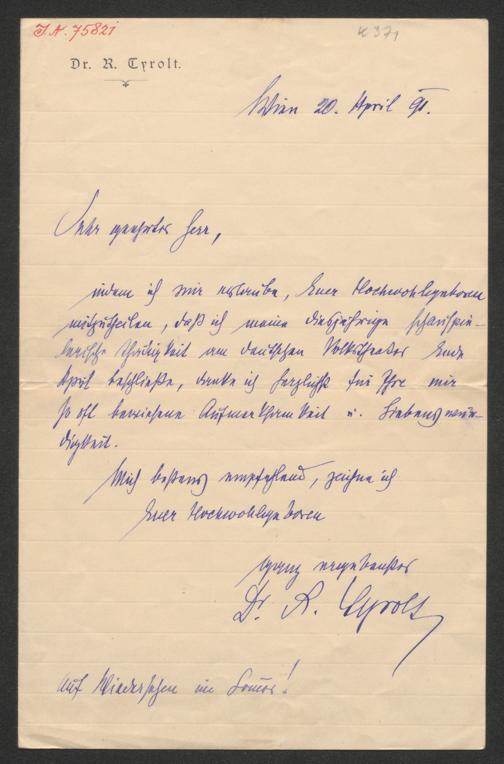 J.N. 75821
K 371
Dr. R. Tyrolt.
Wien 20. April 91.
Sehr geehrter Herr,
indem ich mir erlaube, Euer Hochwohlgeboren
mitzutheilen, daß ich meine diesjährige schauspie-
lerische Thätigkeit am deutschen Volkstheater Ende
April beschließe, danke ich herzlichst für Ihre mir
so oft bewiesene Aufmerksamkeit u. Liebenswür-
digkeit.
Mich bestens empfehlend, zeichne ich
Euer Hochwohlgeboren
ganz ergebenster
Dr. R. Tyrolt
Auf Wiedersehen im